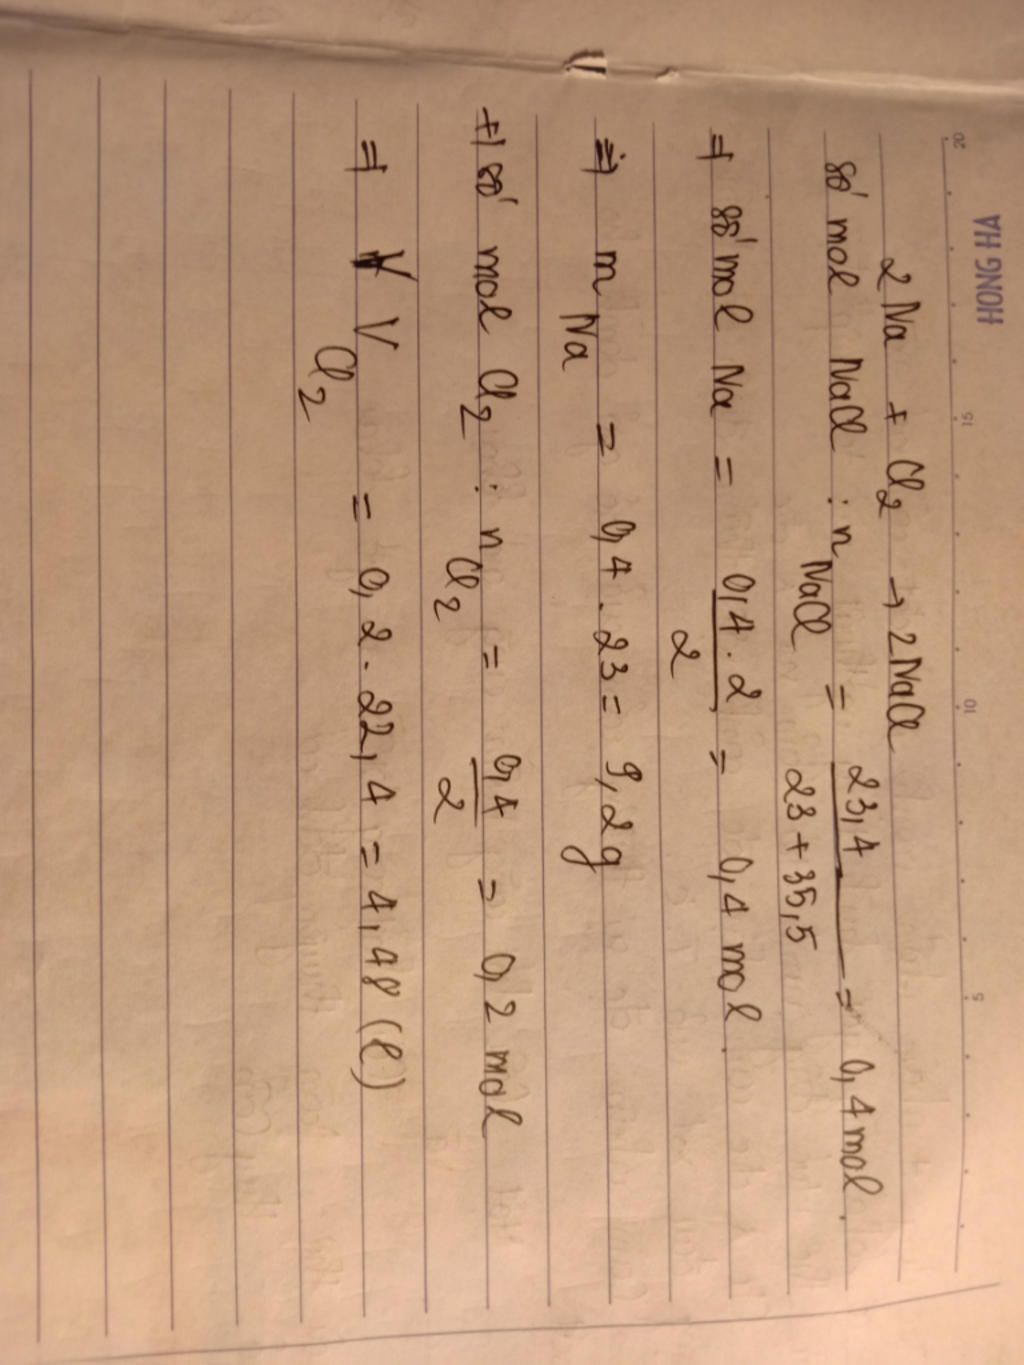 HONG HA
20 15 10 5
2Na + Cl₂ → 2NaCl
số mol NaCl : n NaCl = 23,4 / 23 + 35,5 = 0,4 mol.
+ số mol Na = 0,4 . 2 / 2 = 0,4 mol.
=> m Na = 0,4 . 23 = 9,2g
+) số mol Cl₂ : n Cl₂ = 0,4 / 2 = 0,2 mol
=> V Cl₂ = 0,2 . 22,4 = 4,48 (l)